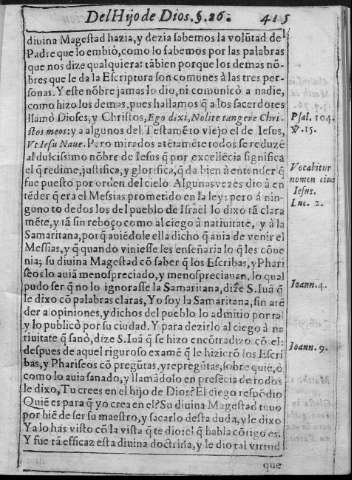 Del Hijo de Dios. §. 26. 415
diuina Magestad hazia, y dezia sabemos la volũtad del
Padre que lo embió, como lo sabemos por las palabras
que nos dize qualquiera: tãbien porque los demas nõ-
bres que le da la Escriptura son comunes à las tres per-
sonas. Y este nõbre jamas lo dio, ni comunicò a nadie,
como hizo los demas, pues hallamos q̃ a los sacerdotes
llamò Dioses, y Christos, Ego dixi, Nolite tangere Chri-
stos meos: y a algunos del Testamẽto viejo el de Iesus,
Vt Iesu Naue. Pero mirados atẽtamẽte todos se reduzẽ
al dulcissimo nõbre de Iesus q̃ por excellẽcia significa
el q̃ redime, justifica, y glorifica, q̃ da bien à entender q̃
fue puesto por orden del cielo. Algunas vezes dio à en
tẽder q̃ era el Messias prometido en la ley: pero à nin-
guno te dedos los del pueblo de Israel lo dixo tã clara
mẽte, y tã sin reboço como al ciego à natiuitate, y à la
Samaritana, por q̃ auiẽdole ella dicho q̃ auia de venir el
Messias, y q̃ quando viniesse les enseñaria lo q̃ les cõue
nia; su diuina Magestad cõ saber q̃ los Escribas, y Phari
seos lo auiã menospreciado, y menospreciauan, lo qual
pudo ser q̃ no lo ignorasse la Samaritana, dizẽ S. Iuã q̃
le dixo cõ palabras claras, Yo soy la Samaritana, sin atẽ
der a opiniones, y dichos del pueblo lo admitio por tal
y lo publicò por su ciudad. Y para dezirlo al ciego à na
tiuitate q̃ sanò, dize S. Iuã q̃ se hizo encõtradizo cõ el:
despues de aquel riguroso examẽ q̃ le hizierõ los Escri
bas, y Phariseos cõ pregũtas, y repregũtas, sobre quiẽ, ò
como lo auia sanado, y llamãdolo en presẽcia de todos
le dixo, Tu crees en el hijo de Dios? El ciego respõdio
Quiẽ es para q̃ yo crea en el? Su diuina Magestad tuuo
por biẽ de ser su maestro, y sacarlo desta duda, y le dixo
Ya lo has visto cõ la vista q̃ te dio: el q̃ habla cõtigo es.
Y fue tã efficaz esta diuina doctrina, y le dio tal virtud
que
Psal. 104.
℣. 15.
Vocabitur
nomen eius
Iesus.
Luc. 2.
Ioann. 4.
Ioann. 9.